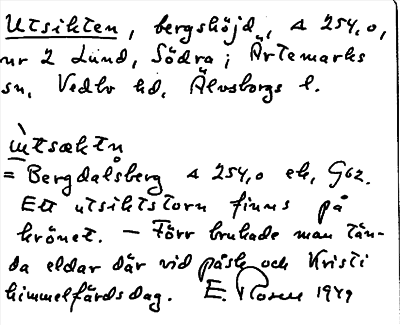 Utsikten, bergshöjd, △ 254,0,
nr 2 Lund, Södra i Ärtemarks
sn, Vedbo hd, Älvsborgs l.
ùtsæktn
= Bergdalsberg △ 254,0 ek, G62.
Ett utsiktstorn finns på
krönet. — Förr brukade man tän-
da eldar där vid påsk och Kristi
himmelfärdsdag. E. Rosell 1949